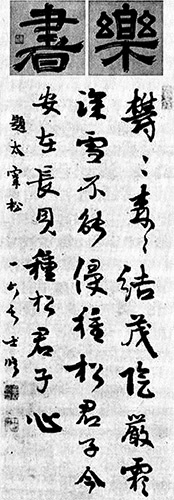 樂書
欝〻青〻結茂陰嚴霜
深雪不能侵種松君子今
安在長見種松君子心
題太宰松
一六居士修